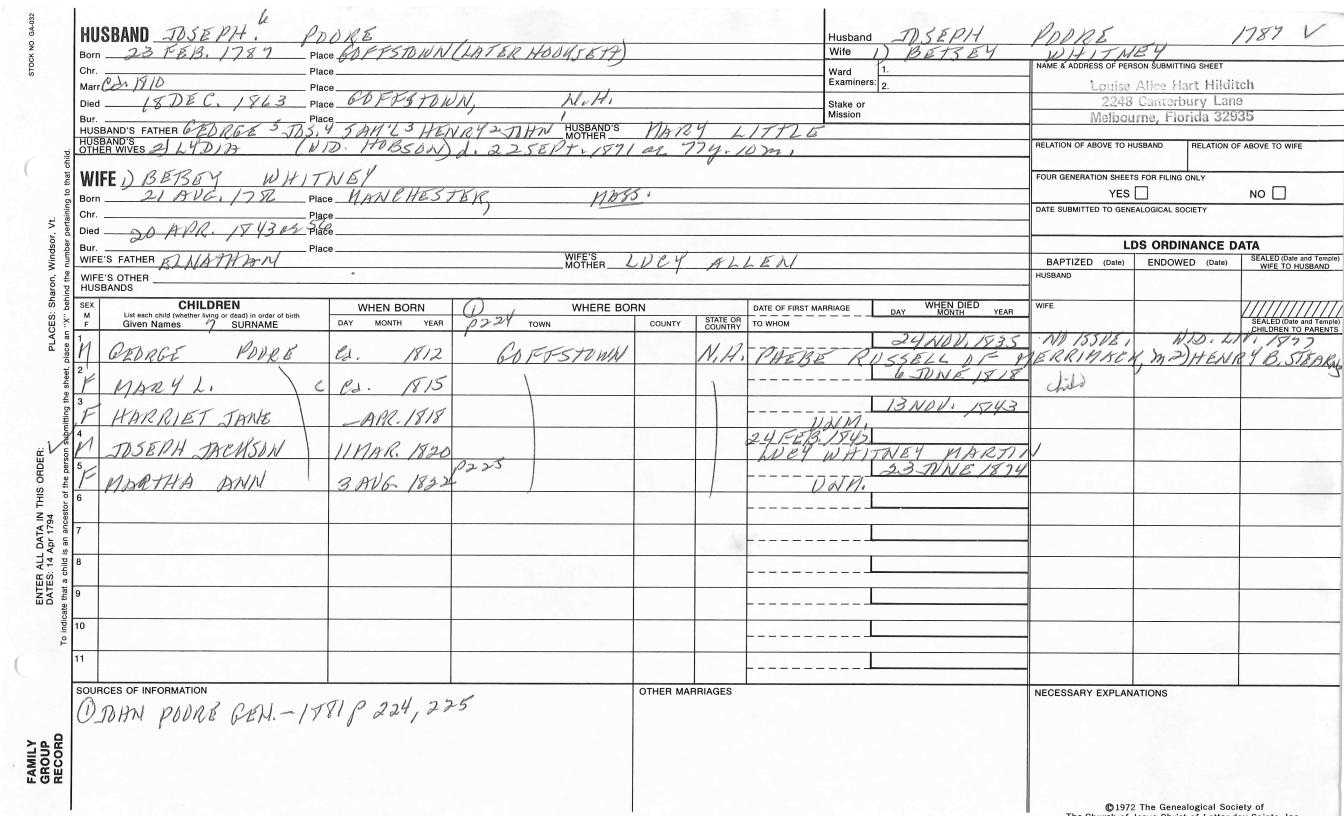 STOCK NO. GA-032
HUSBAND JOSEPH 6 POORE
Born 23 FEB. 1787 Place GOFFSTOWN (LATER HOOKSETT)
Chr. Place
Marr. Ca. 1810 Place
Died 18 DEC. 1863 Place GOFFSTOWN, N.H.
Bur. Place
HUSBAND'S FATHER GEORGE 5 JOS. 4 SAM'L 3 HENRY 2 JOHN 1 HUSBAND'S MOTHER MARY LITTLE
HUSBAND'S OTHER WIVES 2) LYDIA (WID. HOBSON) d. 22 SEPT. 1871 ae 77y. 10m.
Husband JOSEPH POORE 1787 V
Wife 1) BETSEY WHITNEY
Ward Examiners: 1.
2.
Stake or Mission
NAME & ADDRESS OF PERSON SUBMITTING SHEET
Louise Alice Hart Hilditch
2248 Canterbury Lane
Melbourne, Florida 32935
RELATION OF ABOVE TO HUSBAND RELATION OF ABOVE TO WIFE
FOUR GENERATION SHEETS FOR FILING ONLY
YES NO
DATE SUBMITTED TO GENEALOGICAL SOCIETY
WIFE 1) BETSEY WHITNEY
Born 21 AUG. Place MANCHESTER, MASS.
Chr. Place
Died 20 APR. 1843 Place
Bur. Place
WIFE'S FATHER ELNATHAN WIFE'S MOTHER LUCY ALLEN
WIFE'S OTHER HUSBANDS
LDS ORDINANCE DATA
BAPTIZED (Date) ENDOWED (Date) SEALED (Date and Temple) WIFE TO HUSBAND
HUSBAND
WIFE
SEALED (Date and Temple) CHILDREN TO PARENTS
SEX M F
CHILDREN
List each child (whether living or dead) in order of birth
Given Names 7 SURNAME
WHEN BORN
DAY MONTH YEAR
① p224
WHERE BORN
TOWN COUNTY STATE OR COUNTRY
DATE OF FIRST MARRIAGE
TO WHOM
WHEN DIED
DAY MONTH YEAR
1 M GEORGE POORE Ca. 1812 GOFFSTOWN N.H. PHEBE RUSSELL OF MERRIMACK, m 2) HENRY B. STEARNS
24 NOV. 1835 NO ISSUE, WID. LIV. 1877
2 F MARY L. C Ca. 1815 6 JUNE 1818 child
3 F HARRIET JANE —APR. 1818 UNM. 13 NOV. 1843
4 M JOSEPH JACKSON 11 MAR. 1820 LUCY WHITNEY MARTIN
5 F MARTHA ANN 3 AUG. 1822 p225 UNM. 23 JUNE 1874
6
7
8
9
10
11
SOURCES OF INFORMATION
① JOHN POORE GEN. - 1881 p 224, 225
OTHER MARRIAGES
NECESSARY EXPLANATIONS
PLACES: Sharon, Windsor, Vt.
ENTER ALL DATA IN THIS ORDER:
DATES: 14 Apr 1794
To indicate that a child is an ancestor of the person submitting the sheet, place an "X" behind the number pertaining to that child.
FAMILY GROUP RECORD
©1972 The Genealogical Society of
The Church of Jesus Christ of Latter-day Saints, Inc.